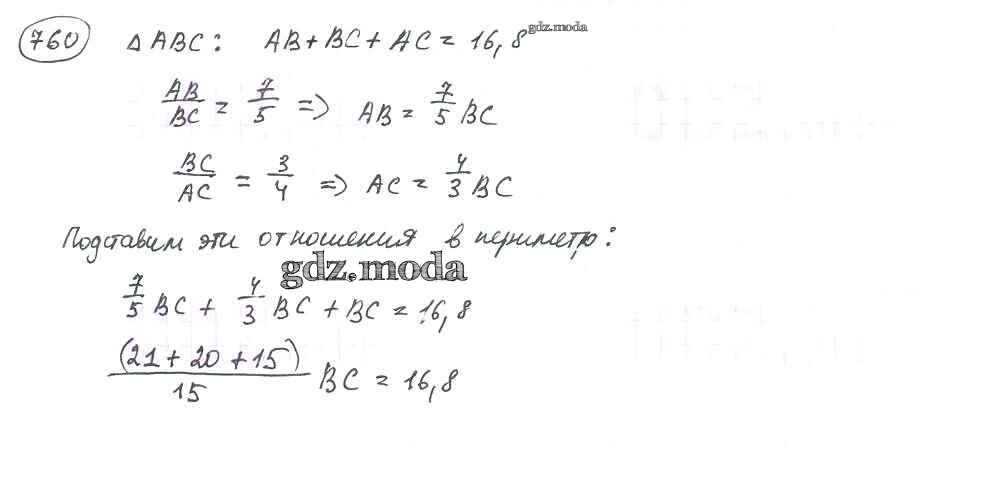 760 △ABC: AB + BC + AC = 16,8 gdz.moda
AB/BC = 7/5 => AB = 7/5 BC
BC/AC = 3/4 => AC = 4/3 BC
Подставим эти отношения в периметр:
gdz.moda
7/5 BC + 4/3 BC + BC = 16,8
(21 + 20 + 15)/15 BC = 16,8